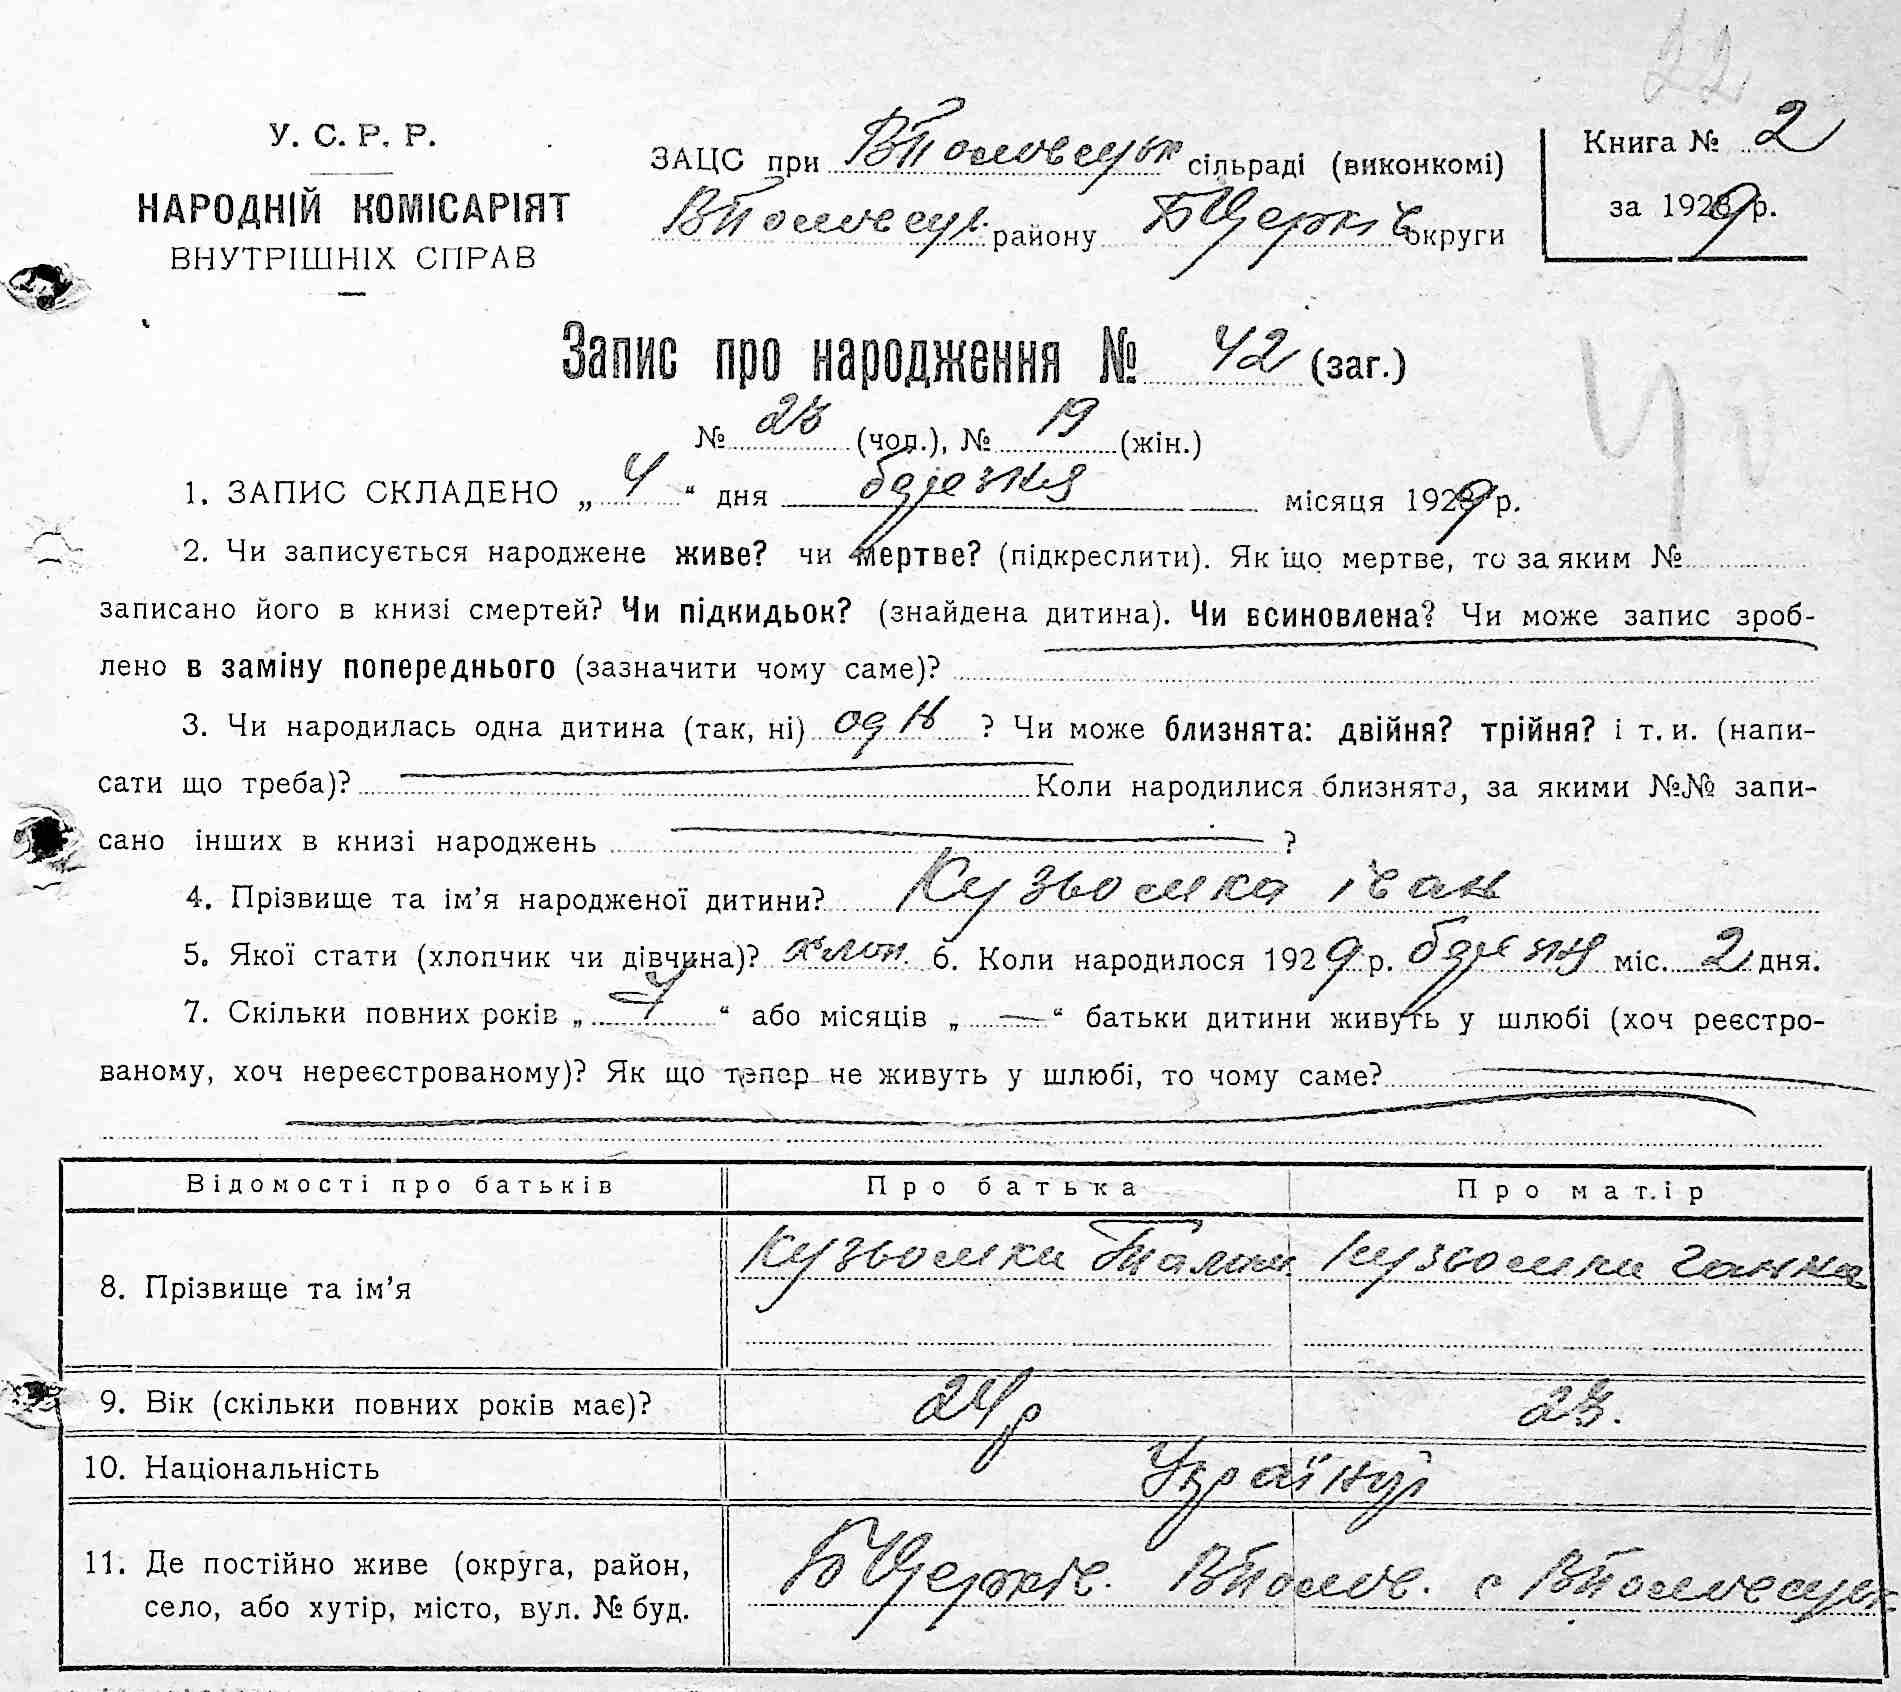 22
У. С. Р. Р.
НАРОДНІЙ КОМІСАРІЯТ
ВНУТРІШНІХ СПРАВ
ЗАЦС при ВПоловецьк сільраді (виконкомі)
ВПоловец. району БЦерків округи
Книга № 2
за 1929 р.
Запис про народження № 42 (заг.)
№ 23 (чол.), № 19 (жін.)
1. ЗАПИС СКЛАДЕНО „ 4 “ дня березня місяця 1929 р.
2. Чи записується народжене живе? чи мертве? (підкреслити). Як що мертве, то за яким №
записано його в книзі смертей? Чи підкидьок? (знайдена дитина). Чи всиновлена? Чи може запис зроб-
лено в заміну попереднього (зазначити чому саме)?
3. Чи народилась одна дитина (так, ні) одн ? Чи може близнята: двійня? трійня? і т. и. (напи-
сати що треба)? Коли народилися близнята, за якими №№ запи-
сано інших в книзі народжень ?
4. Прізвище та ім’я народженої дитини? Кузьомка іван
5. Якої стати (хлопчик чи дівчина)? хлоп. 6. Коли народилося 1929 р. березня міс. 2 дня.
7. Скільки повних років „ 4 “ або місяців „ — “ батьки дитини живуть у шлюбі (хоч реєстро-
ваному, хоч нереєстрованому)? Як що тепер не живуть у шлюбі, то чому саме?
Відомості про батьків Про батька Про матір
8. Прізвище та ім’я Кузьомки Кузьомки ганна
9. Вік (скільки повних років має)? 24р 23.
10. Національність Українці
11. Де постійно живе (округа, район, БЦерків. ВПолов. с ВПоловецьк
село, або хутір, місто, вул. № буд.